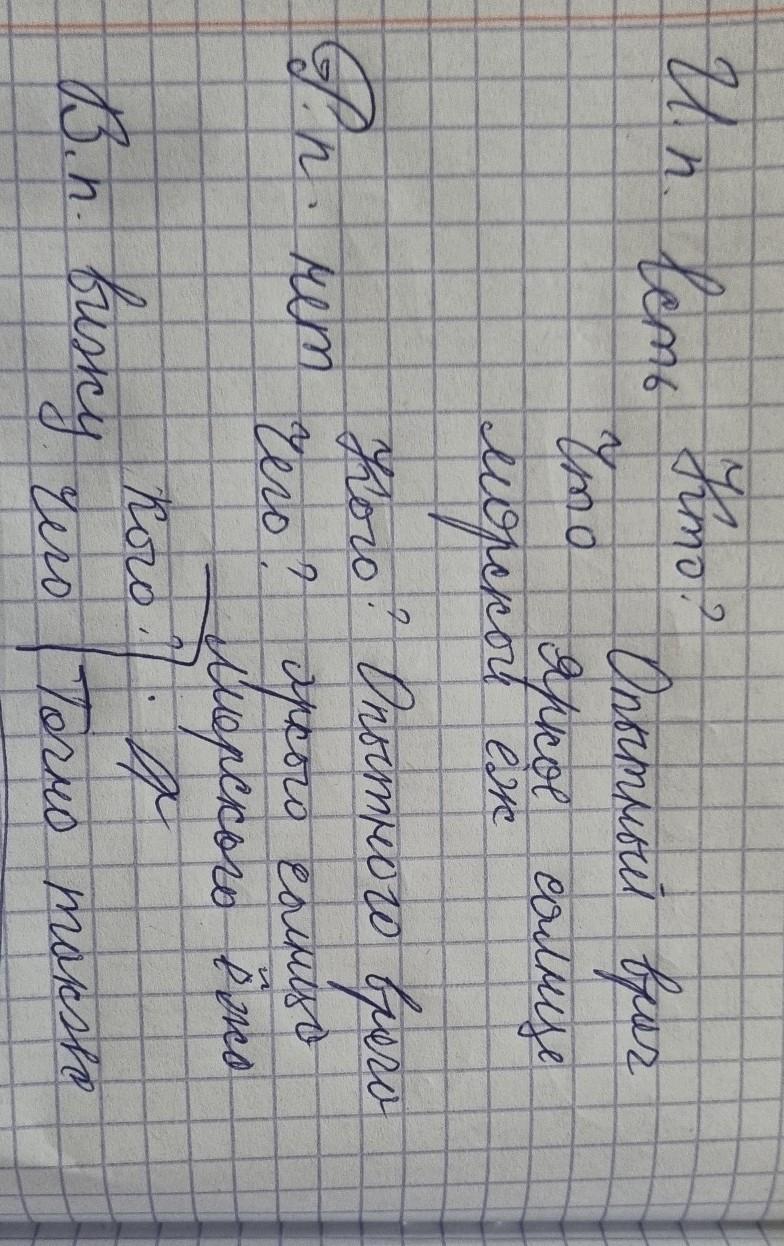 И.п. Есть Кто? Опытный врач
Что Яркое солнце
морской еж
Р.п. нет Кого? Опытного врача
Чего? яркого солнца
Морского ёжа
В.п. вижу Кого?
Чего Точно также